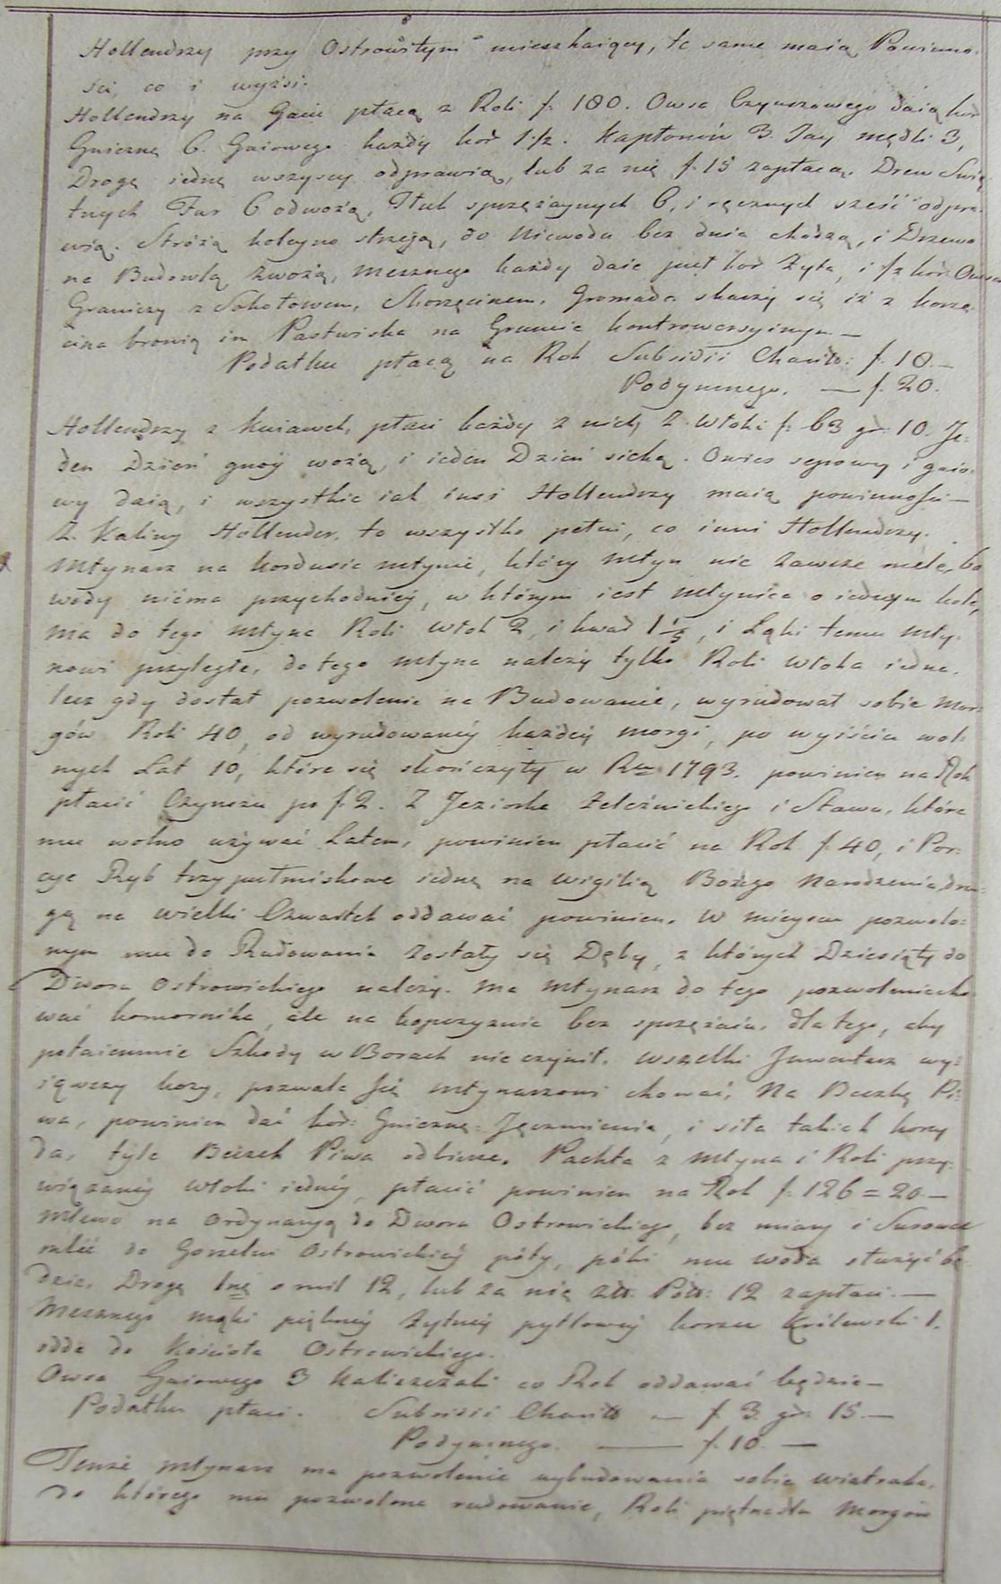 Hollendrzy przy Ostrowitym mieszkaiący, te same maią Powinno-
ści, co i wyżsi.
Hollendrzy na Gaiu płacą z Roli f. 180. Owsa Czynszowego daią kor
Gnieznę 6. Gaiowego każdy kor 1 1/2. Kapłonów 3. Jay mędli 3,
Drogę iednę wszyscy odprawią, lub za nię f. 15 zapłacą. Drew Świę-
tnych Fur 6 odwożą, Tłuk sprzężaynych 6, i ręcznych sześć odpra-
wią. Stróżą koleyno strzegą, do Niewodu bez dnia chodzą, i Drzewo
na Budowlą zwożą, mesznego każdy daie puł kor Żyta, i 1/2 kor: Owsa
Graniczy z Sokołowem, Skorzęcinem. Gromada skarży się iż z Korzę-
cina bronią im Pastwiska na Gruncie kontrowersyinym —
Podatku płacą na Rok Subsidii Charit: f. 18. —
Podymnego. — f. 20.
Hollendrzy z Kuiawek, płaci każdy z nich z Włoki f: 63 gr. 10. Je-
den Dzień gnóy wożą, i ieden Dzień sieką. Owies sepowy i gaio-
wy daią, i wszystkie iak insi Hollendrzy maią powinności —
Z. Kaliny Hollender, to wszystko pełni, co inni Hollendrzy.
Młynarz na Kordusie młynie, który młyn nie zawsze mele, bo
wody niéma przychodniéy, w którym iest Młynica o iednym kole,
ma do tego młyna Roli Włok 2, i kwad 1 1/5, i Łąki temu mły-
nowi przyległe, do tego młyna należy tylko Roli Włoka iedna,
lecz gdy dostał pozwolenie na Budowanie, wyrudował sobie Mor-
gów Roli 40, od wyrudowanéy każdéy morgi, po wyiściu wol-
nych Lat 10, które się skończyły w Ru 1793. powinien na Rok
płacić Czynszu po f. 2. Z Jeziorka Żeleźnickiego i Stawu, które
mu wolno używać Latem, powinien płacić na Rok f. 40, i Por-
cye Ryb trzypułmiskowe iednę na wigilią Bożego Narodzenia, dru-
gą na wielki Czwartek oddawać powinien. W mieyscu pozwolo-
nym mu do Rudowania zostały się Dęby, z których Dziesiąty do
Dwora Ostrowickiego należy. Ma młynarz do tego pozwolenie cho-
wać komornika, ale na kopczyznie bez sprzężaiu, dla tego, aby
potaiemnie Szkody w Borach nie czynił. Wszelki Jnwentarz wy-
iąwszy kozy, pozwala się młynarzowi chować, Na Beczkę Pi-
wa, powinien dać kor: Gnieznę: Jęczmienia, i siła takich korcy
da, tyle Beczek Piwa odbierze. Pachta z młyna i Roli przy-
wiązanéy włoki iednéy, płacić powinien na Rok f: 126 = 20. —
Mlewo na Ordynaryą do Dwora Ostrowickiego, bez miary i Surowce
mléć do Gorzelni Ostrowickiéy póty, póki mu woda służyć bę-
dzie. Drogę 1nę o mil 12, lub za nię złt. Pols: 12 zapłaci. —
Mesznego mąki piękney żytniéy pytlowéy korzec Królewski 1.
odda do Kościoła Ostrowickiego.
Owsa Gaiowego 3 kaliszczaki co Rok oddawać będzie —
Podatku płaci. Subsidii Charit — f. 3. gr: 15. —
Podymnego. — f. 10. —
Tenże młynarz ma pozwolenie wybudowania sobie wiatraka,
do którego mu pozwolone rudowanie, Roli piętnastu Morgów